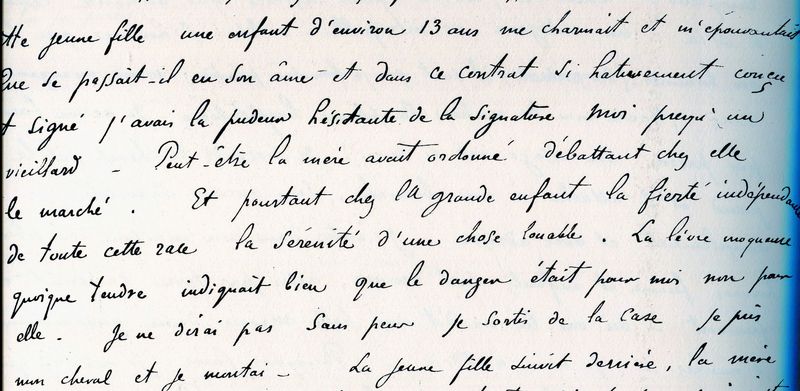 tte jeune fille une enfant d'environ 13 ans me charmait et m'épouvantait
Que se passait-il en son âme - et dans ce contrat si hativement conçu
t signé j'avais la pudeur hésitante de la signature moi presqu' un
vieillard - Peut-être la mère avait ordonné débattant chez elle
le marché. Et pourtant chez la grande enfant la fierté indépendante
de toute cette race la sérénité d'une chose louable. La lèvre moqueuse
quoique tendre indiquait bien que le danger était pour moi non pour
elle. Je ne dirai pas sans peur je sortis de la case je pris
mon cheval et je montai - La jeune fille suivit derrière, la mère